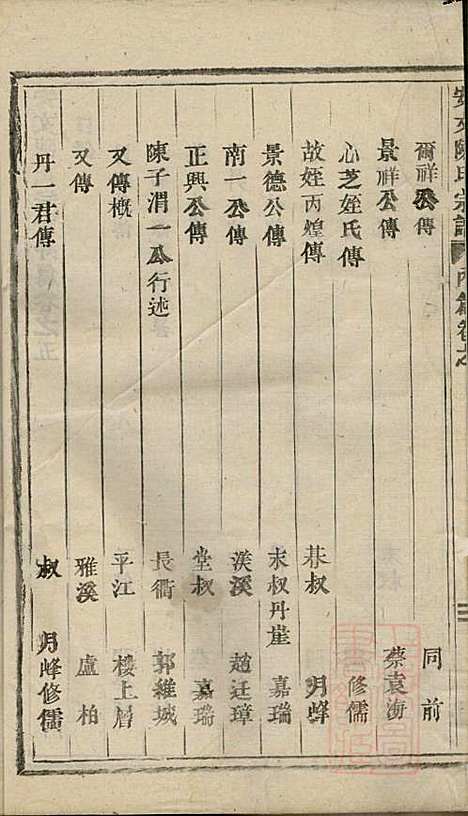 安文陳氏宗譜 內篇卷之
爾祥公傳 同前
景祥公傳 蔡袁衡
心芝姪氏傳 修儒
故姪丙煌傳 恭叔 明峰
景德公傳 末叔丹崖 嘉瑞
南一公傳 漢溪 趙廷璋
正興公傳 堂叔 嘉瑞
陳子渭一公行述 長衢 郭維城
又傳概 平江 樓上層
又傳 雅溪 盧柏
丹一君傳 叔 明峰修儒